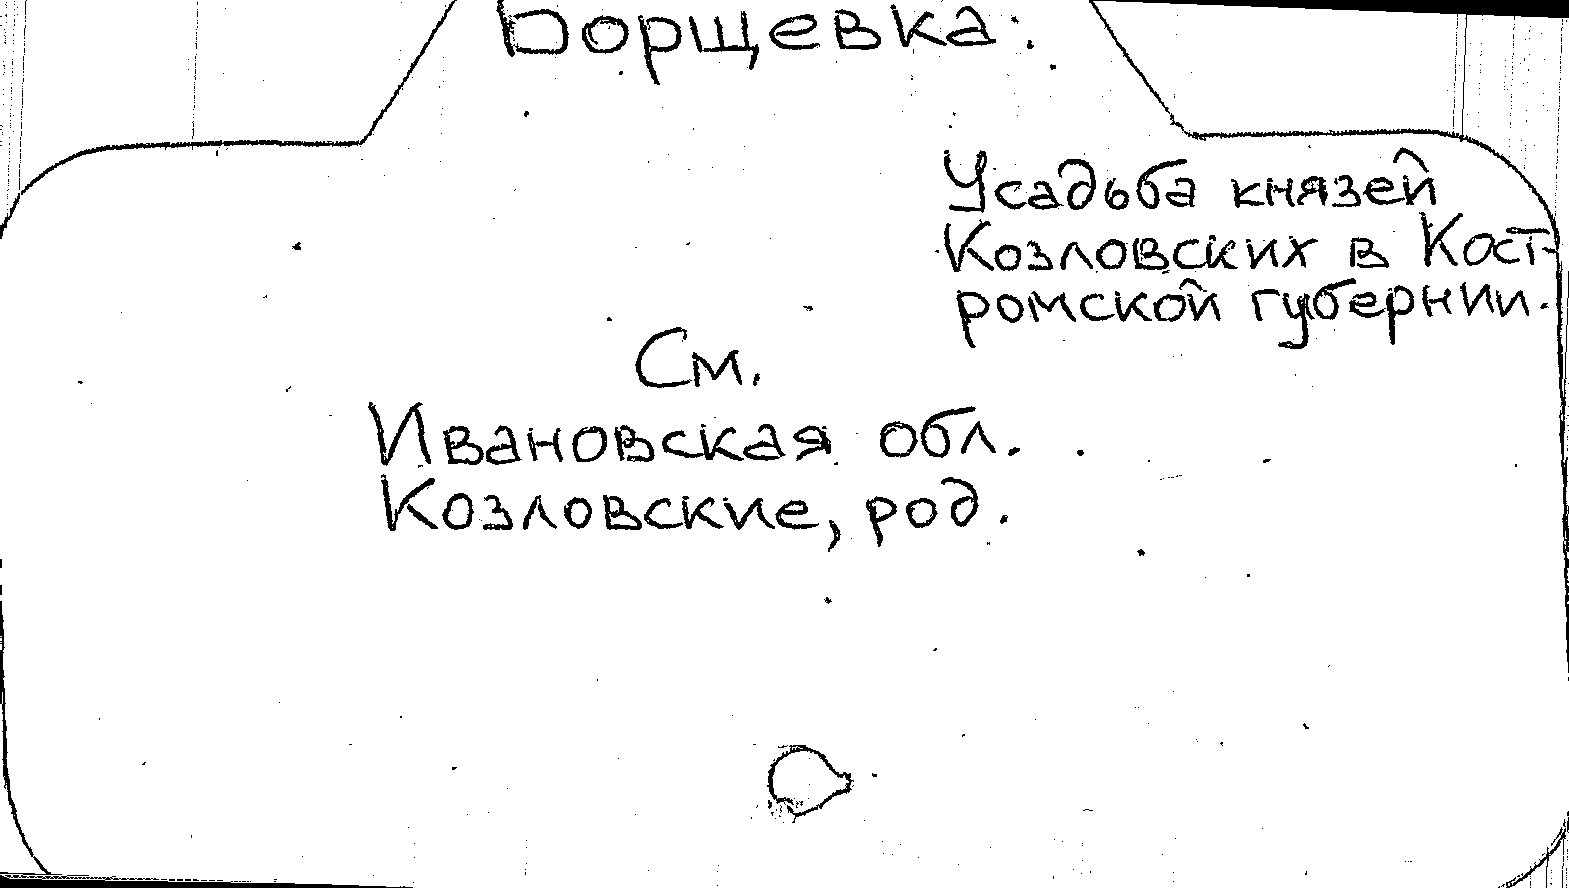 Борщевка.
Усадьба князей
Козловских в Кост-
ромской губернии.
См.
Ивановская обл.
Козловские, род.